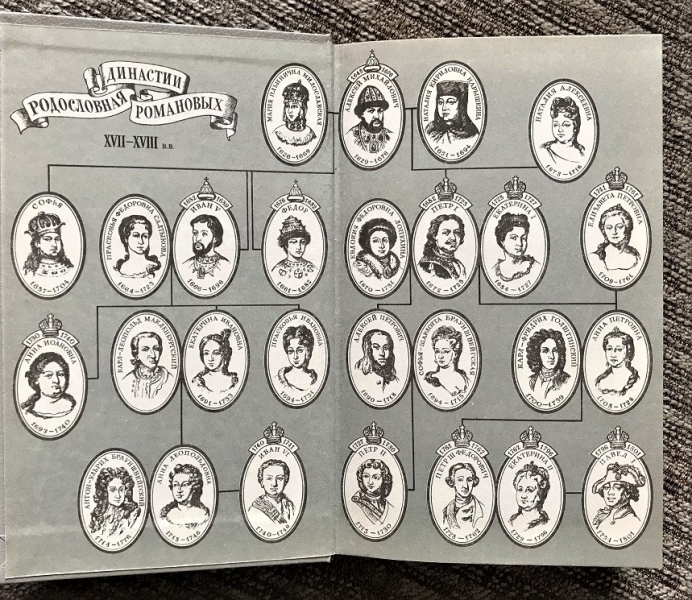 РОДОСЛОВНАЯ
ДИНАСТИИ
РОМАНОВЫХ
XVII—XVIII в.в.
МАРИЯ ИЛЬИНИЧНА МИЛОСЛАВСКАЯ
1626—1669
АЛЕКСЕЙ МИХАЙЛОВИЧ
1629—1676
НАТАЛИЯ КИРИЛОВНА НАРЫШКИНА
1651—1694
НАТАЛИЯ АЛЕКСЕЕВНА
1673—1716
СОФЬЯ
1657—1704
ПРАСКОВЬЯ ФЕДОРОВНА САЛТЫКОВА
1664—1723
ИВАН V
1666—1696
ФЕДОР
1661—1682
ЕВДОКИЯ ФЕДОРОВНА ЛОПУХИНА
1670—1731
ПЕТР I
1672—1725
1725 1727
ЕКАТЕРИНА I
1684—1727
1741 1761
ЕЛИЗАВЕТА ПЕТРОВНА
1709—1761
1730 1740
АННА ИОАНОВНА
1693—1740
КАРЛ-ЛЕОПОЛЬД МАКЛЕНБУРГСКИЙ
ЕКАТЕРИНА ИВАНОВНА
1691—1733
ПРАСКОВЬЯ ИВАНОВНА
1694—1731
АЛЕКСЕЙ ПЕТРОВИЧ
1690—1718
СОФЬЯ-ШАРЛОТА БРАУНШВЕЙГСКАЯ
1694—1715
КАРЛ-ФРИДРИХ ГОЛШТИНСКИЙ
1700—1739
АННА ПЕТРОВНА
1708—1728
АНТОН-УЛЬРИХ БРАУНШВЕЙГСКИЙ
1714—1776
АННА ЛЕОПОЛЬДОВНА
1718—1746
1740 1741
ИВАН VI
1740—1764
1727 1730
ПЕТР II
1715—1730
1761 1762
ПЕТР III ФЕДОРОВИЧ
1728—1762
1762 1796
ЕКАТЕРИНА II
1729—1796
1796 1801
ПАВЕЛ
1754—1801